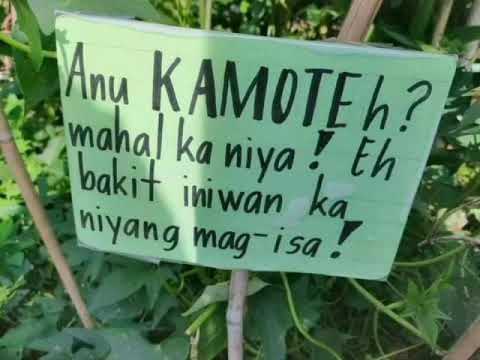 Anu KAMOTEh?
mahal ka niya! Eh
bakit iniwan ka
niyang mag-isa!